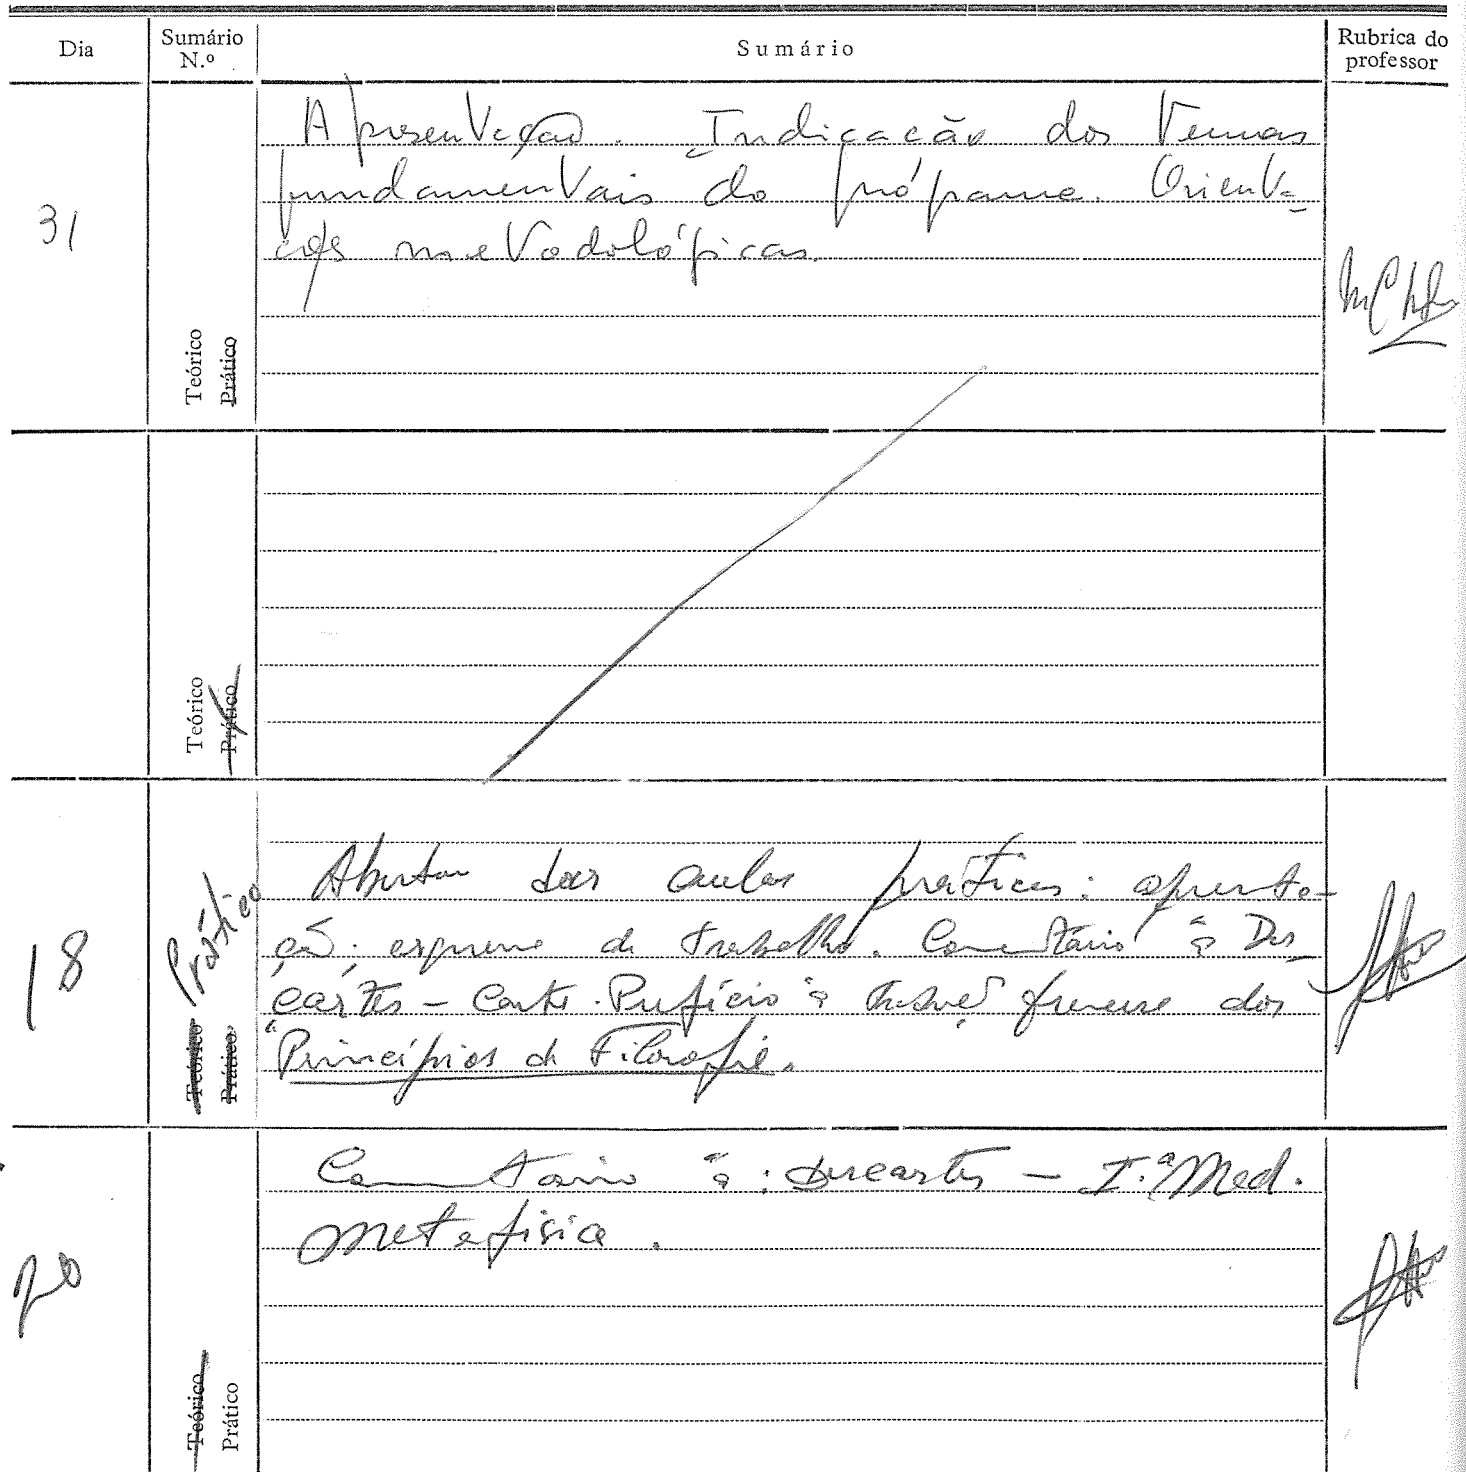 Dia
Sumário N.º
Sumário
Rubrica do professor
Apresentação. Indicação dos temas
fundamentais do programa. Orienta-
ções metodológicas.
31
Teórico
Prático
Teórico
Prático
Abertura das aulas práticas: apresenta-
ção; esquema de trabalho. Comentário a Des-
cartes - Carta-Prefácio à tradução francesa dos
"Princípios da Filosofia.
18
Prático
Teórico
Prático
Comentário a: Descartes - I.ª Med.
metafísica.
20
Teórico
Prático